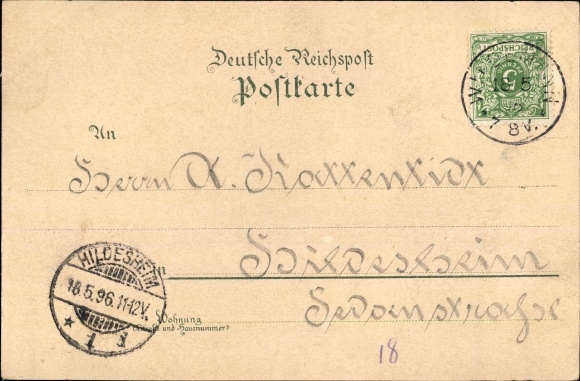 Deutsche Reichspost
Postkarte
REICHSPOST
5
18 5
7 8 V.
An
Herrn A.
in Hildesheim
Sedanstraße
HILDESHEIM
18.5.96.11-12V.
* 1
Wohnung
(Straße und Hausnummer)
18